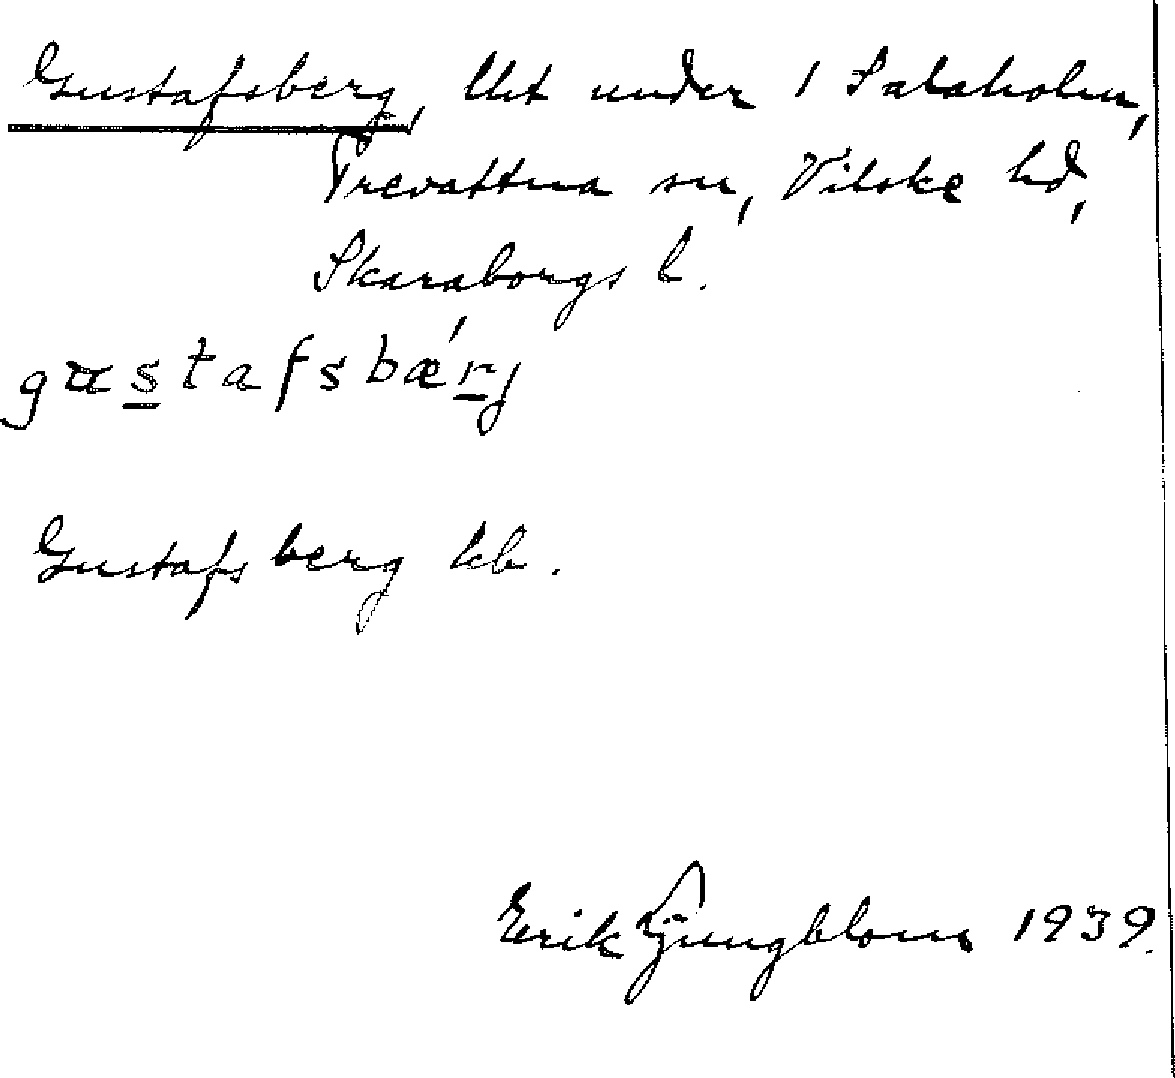 Gustafsberg, Ut under 1 Salaholm,
Trevattna sn, Vilske hd,
Skaraborgs l.
gustafsbǽrj
Gustafsberg kb.
Erik Ljungblom 1939.